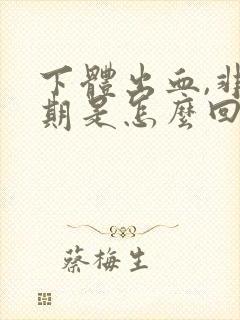 下體出血,非
期是怎麼回
蔡梅生